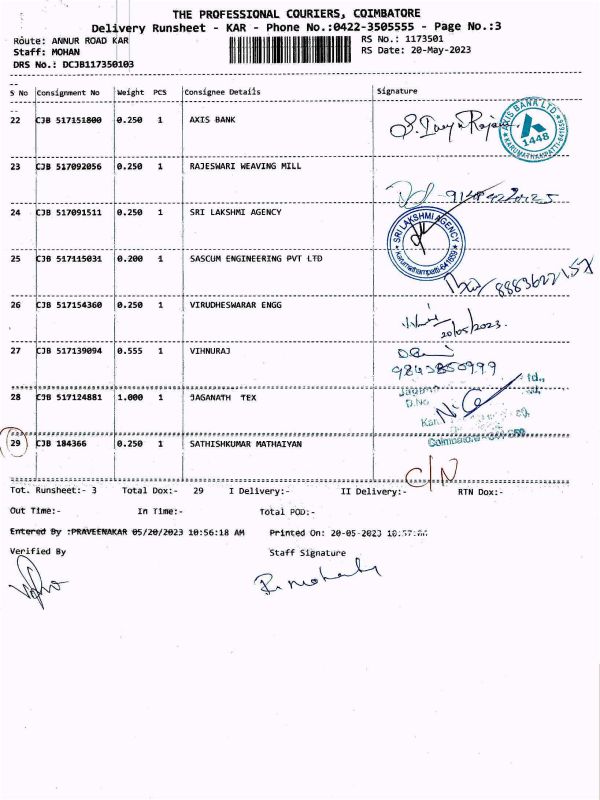 THE PROFESSIONAL COURIERS, COIMBATORE
Delivery Runsheet - KAR - Phone No.:0422-3505555 - Page No.:3
Route: ANNUR ROAD KAR RS No.: 1173501
Staff: MOHAN RS Date: 20-May-2023
DRS No.: DCJB117350103
S No Consignment No Weight PCS Consignee Details Signature
22 CJB 517151800 0.250 1 AXIS BANK
AXIS BANK LTD.
1448
23 CJB 517092056 0.250 1 RAJESWARI WEAVING MILL
24 CJB 517091511 0.250 1 SRI LAKSHMI AGENCY
SRI LAKSHMI AGENCY
Karumathampatti-641659
25 CJB 517115031 0.200 1 SASCUM ENGINEERING PVT LTD
26 CJB 517154360 0.250 1 VIRUDHESWARAR ENGG
20/05/2023.
27 CJB 517139094 0.555 1 VIHNURAJ
9843850999
28 CJB 517124881 1.000 1 JAGANATH TEX
29 CJB 184366 0.250 1 SATHISHKUMAR MATHAIYAN
C/N
Tot. Runsheet:- 3 Total Dox:- 29 I Delivery:- II Delivery:- RTN Dox:-
Out Time:- In Time:- Total POD:-
Entered By :PRAVEENAKAR 05/20/2023 10:56:18 AM Printed On: 20-05-2023
Verified By Staff Signature